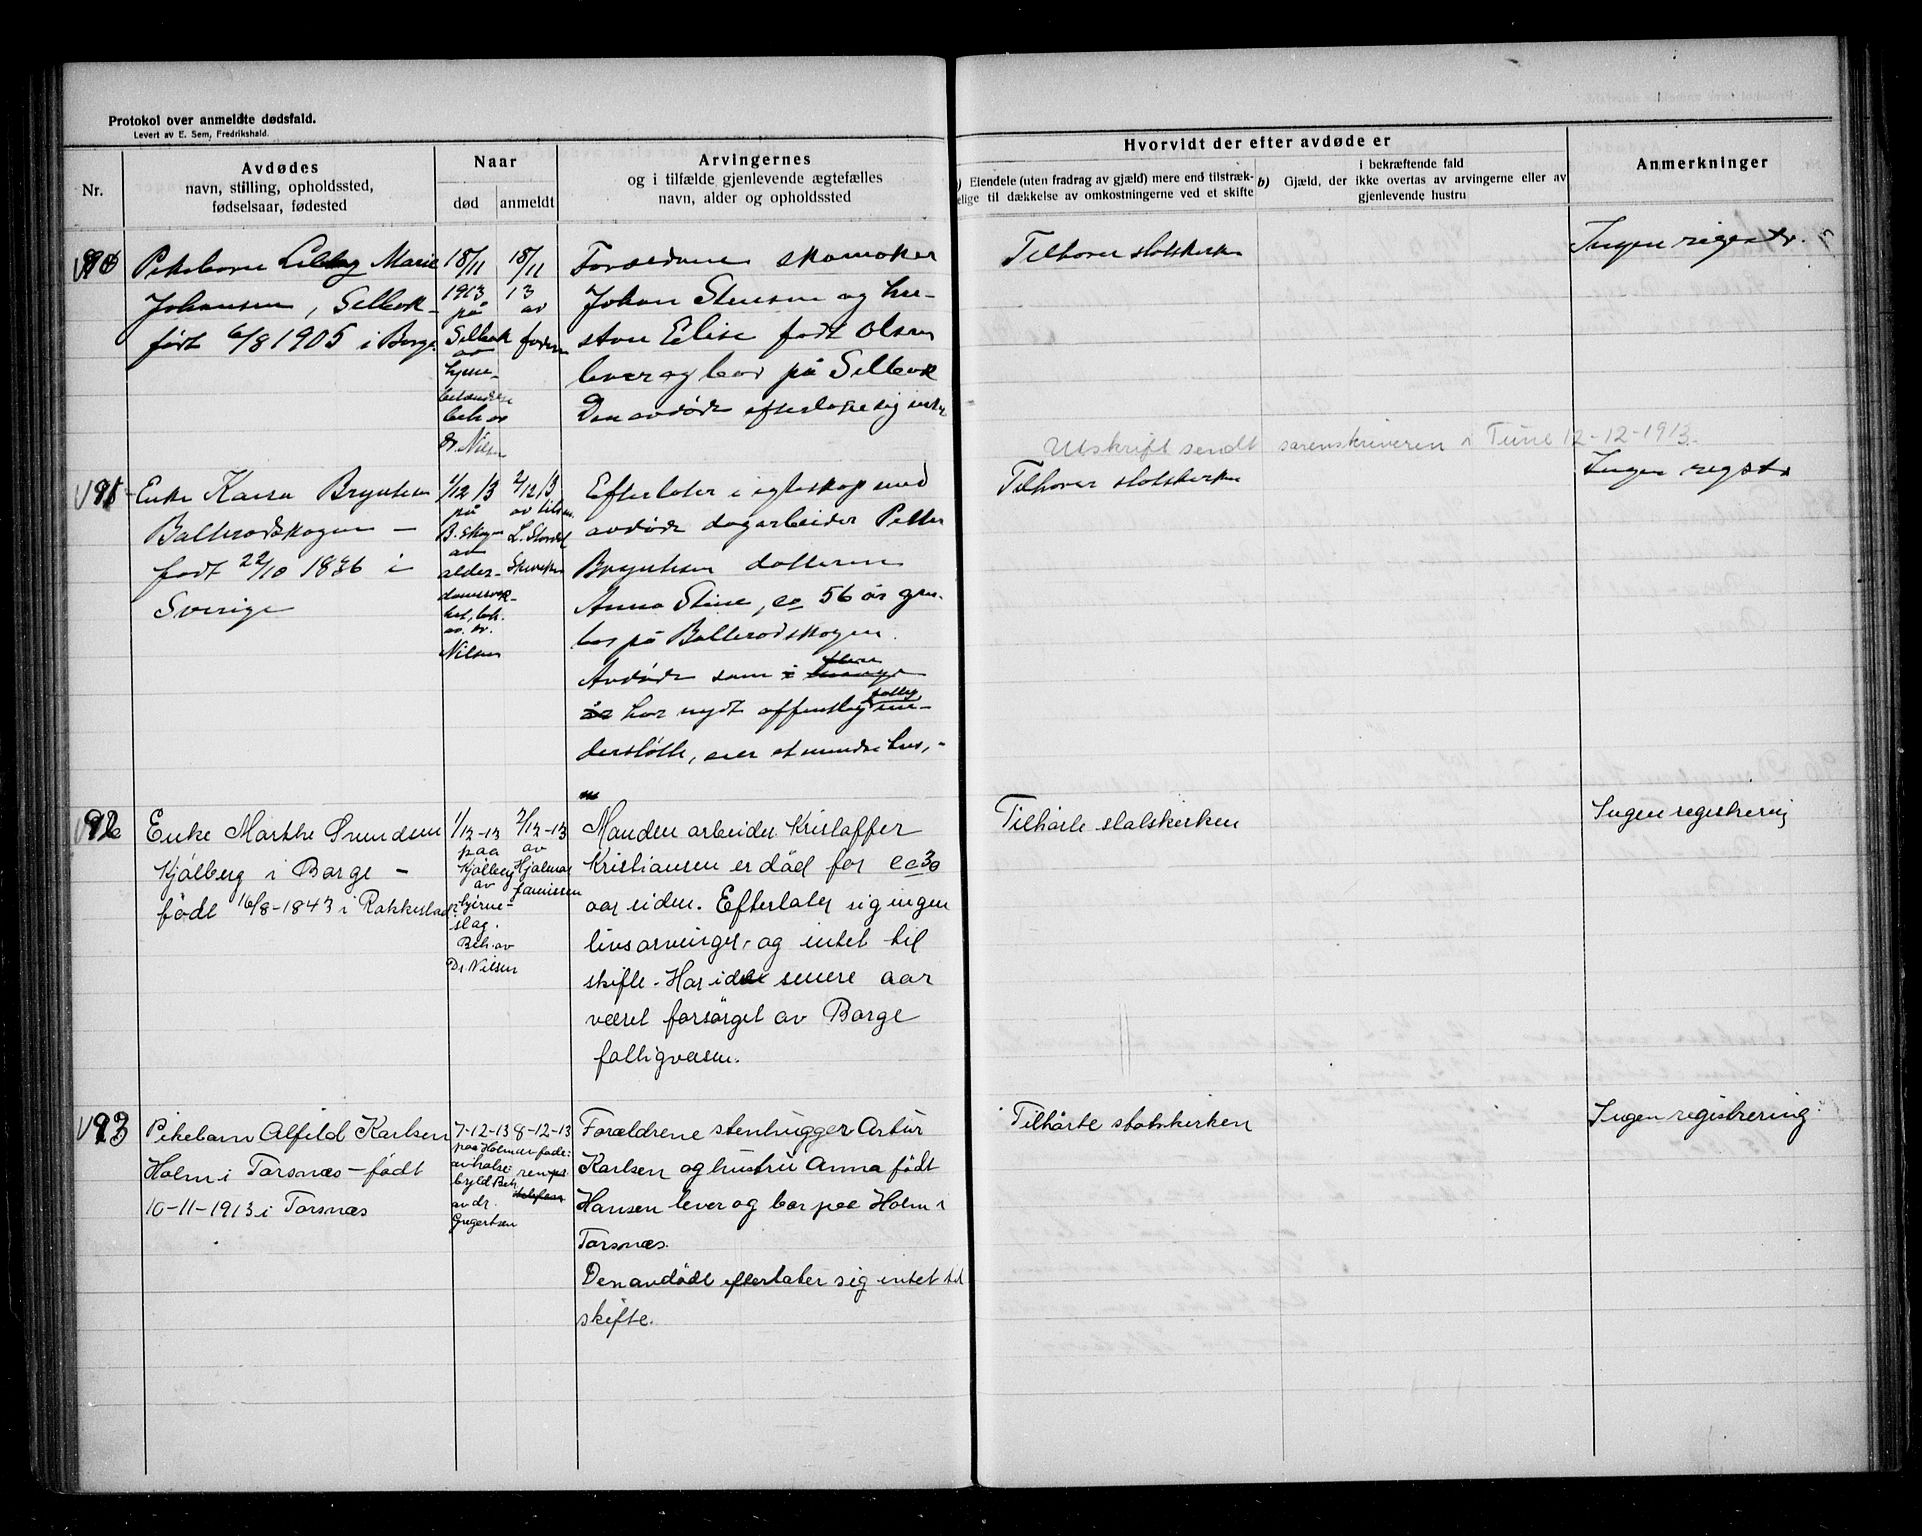 Protokol over anmeldte dødsfald.
Levert av E. Sem, Fredrikshald.
Nr.
Avdødes
navn, stilling, opholdssted,
fødselsaar, fødested
Naar
død
anmeldt
Arvingernes
og i tilfælde gjenlevende ægtefælles
navn, alder og opholdssted
Hvorvidt der efter avdøde er
a) Eiendele (uten fradrag av gjæld) mere end tilstræk-
kelige til dækkelse av omkostningerne ved et skifte
b)
i bekræftende fald
Gjæld, der ikke overtas av arvingerne eller av
gjenlevende hustru
Anmerkninger
90
Pikebarn Marie
Johansen, Selbak -
født 6/8 1905 i Borge
18/11
1913
på
Selbak
av
hjerne-
betændelse
beh av
dr. Nilsen
18/11
13
av
faderen
Forældrene skomaker
Johan Stensen og hu-
stru Elise født Olsen
lever og bor på Selbak
Den avdøde efterlater sig intet
Tilhører statskirken
Ingen registr.
Utskrift sendt sorenskriveren i Tune 12-12-1913.
91
Enke Kaisa Bryntesen
Balterødskogen -
født 22/10 1836 i
Sverige
1/12 13
på
B.skogen
av
alder-
domssvak-
het, beh.
av dr.
Nilsen
2/12 13
av
L.
Efterlater i egteskap med
avdøde dagarbeider Petter
Bryntesen datteren
Anna Stine, ca 56 år gm.
bor på Balterødskogen.
Avdøde som i flere mange
år har nydt offentlig fattig un-
derstøtte, eier et mindre hus, -
Tilhører statskirken
Ingen regstr
92
Enke Marthe Svendsen
Kjølberg i Borge -
født 16/8-1843 i Rakkestad
1/12-13
paa
Kjølberg
av
hjerne-
slag.
Beh. av
Dr Nilsen
2/12-13
av
Hjalmar
Jamissen
Manden arbeider Kristoffer
Kristiansen er død for ca 30
aar siden. Efterlater sig ingen
livsarvinger og intet til
skifte. Har i de senere aar
været forsørget av Borge
fattigvæsen.
Tilhørte statskirken
Ingen registrering
93
Pikebarn Alfild Karlsen
Holm i Torsnæs - født
10-11-1913 i Torsnæs
7-12-13
paa Holm
av halse-
byld Beh.
av dr.
Gregertsen
8-12-13
av fade-
ren
Forældrene stenhugger Artur
Karlsen og hustru Anna født
Hansen lever og bor paa Holm i
Torsnæs.
Den avdøde efterlater sig intet til
skifte.
Tilhørte statskirken
Ingen registrering